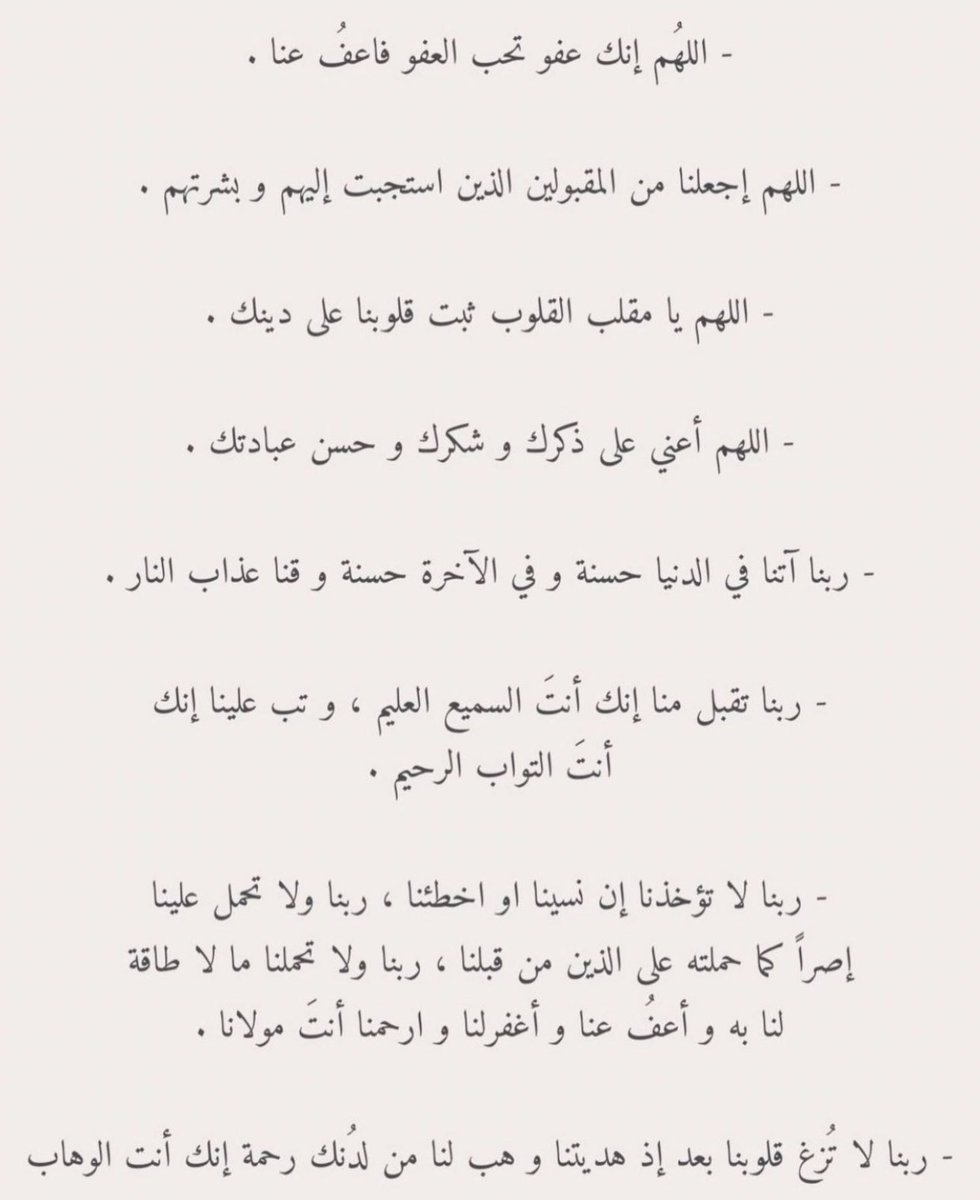 - اللهُم إنك عفو تحب العفو فاعفُ عنا .
- اللهم إجعلنا من المقبولين الذين استجبت إليهم و بشرتهم .
- اللهم يا مقلب القلوب ثبت قلوبنا على دينك .
- اللهم أعني على ذكرك و شكرك و حسن عبادتك .
- ربنا آتنا في الدنيا حسنة و في الآخرة حسنة و قنا عذاب النار .
- ربنا تقبل منا إنك أنتَ السميع العليم ، و تب علينا إنك
أنتَ التواب الرحيم .
- ربنا لا تؤخذنا إن نسينا او اخطئنا ، ربنا ولا تحمل علينا
إصراً كما حملته على الذين من قبلنا ، ربنا ولا تحملنا ما لا طاقة
لنا به و أعفُ عنا و أغفرلنا و ارحمنا أنتَ مولانا .
- ربنا لا تُزغ قلوبنا بعد إذ هديتنا و هب لنا من لدُنك رحمة إنك أنت الوهاب